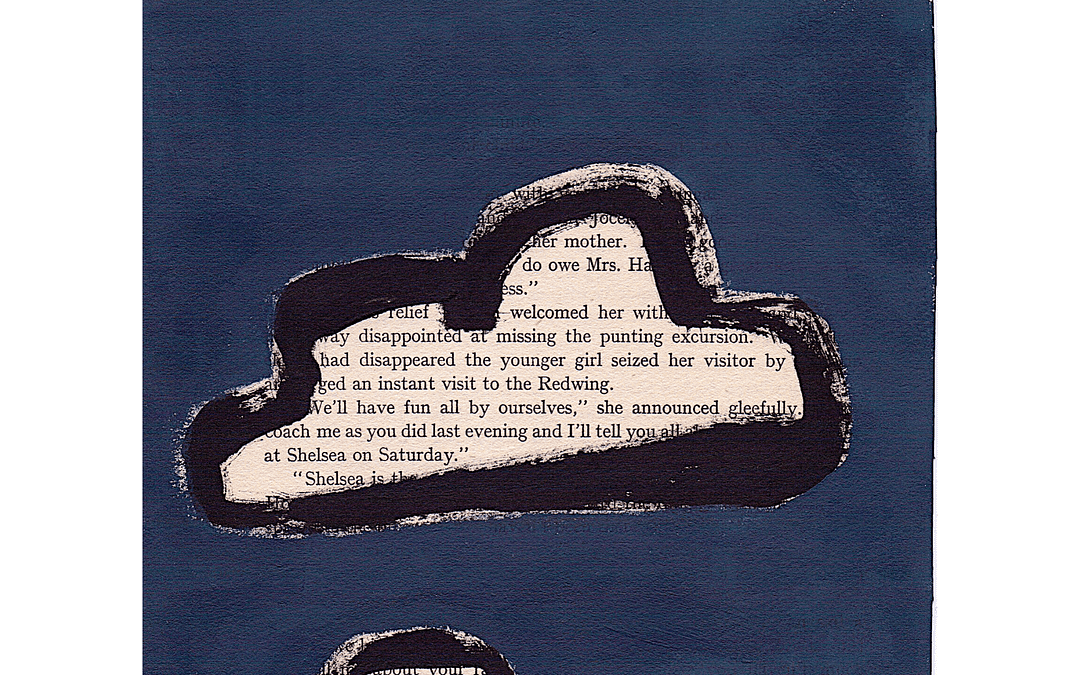 with
her mother.
do owe Mrs.
relief welcomed her with
disappointed at missing the punting excursion.
had disappeared the younger girl seized her visitor by
an instant visit to the Redwing.
We'll have fun all by ourselves,” she announced gleefully.
coach me as you did last evening and I'll tell you all
at Shelsea on Saturday.”
“Shelsea is the
about your